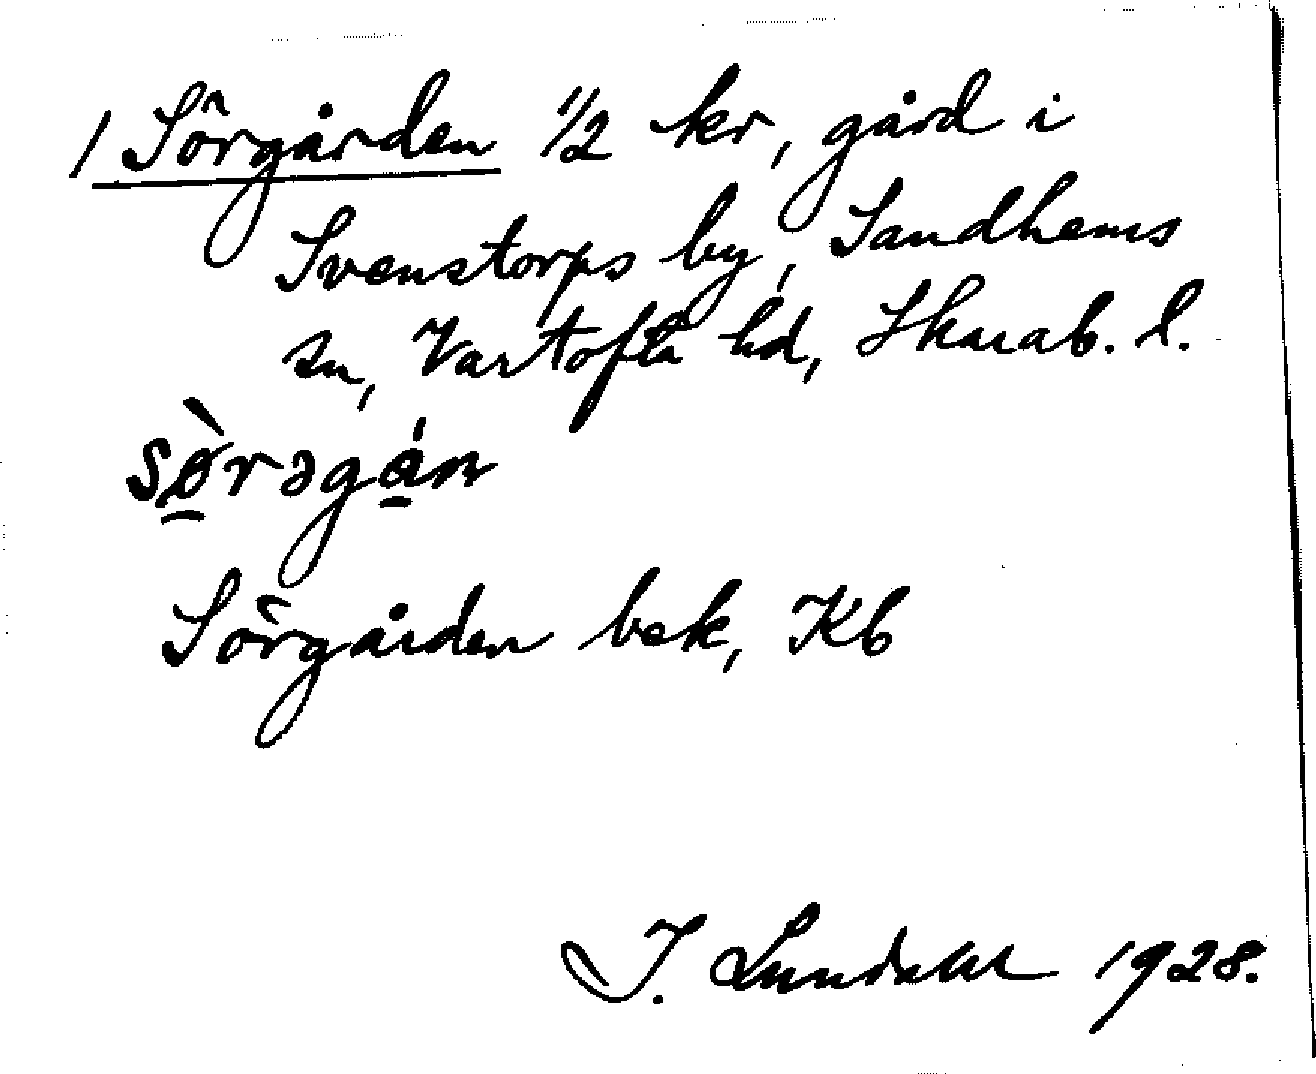 1 Sörgården 1/2 kr, gård i
Svenstorps by, Sandhems
sn, Vartofta hd, Skarab. l.
sø̀rəgán
Sörgården bek, Kb
I. Lundahl 1928.